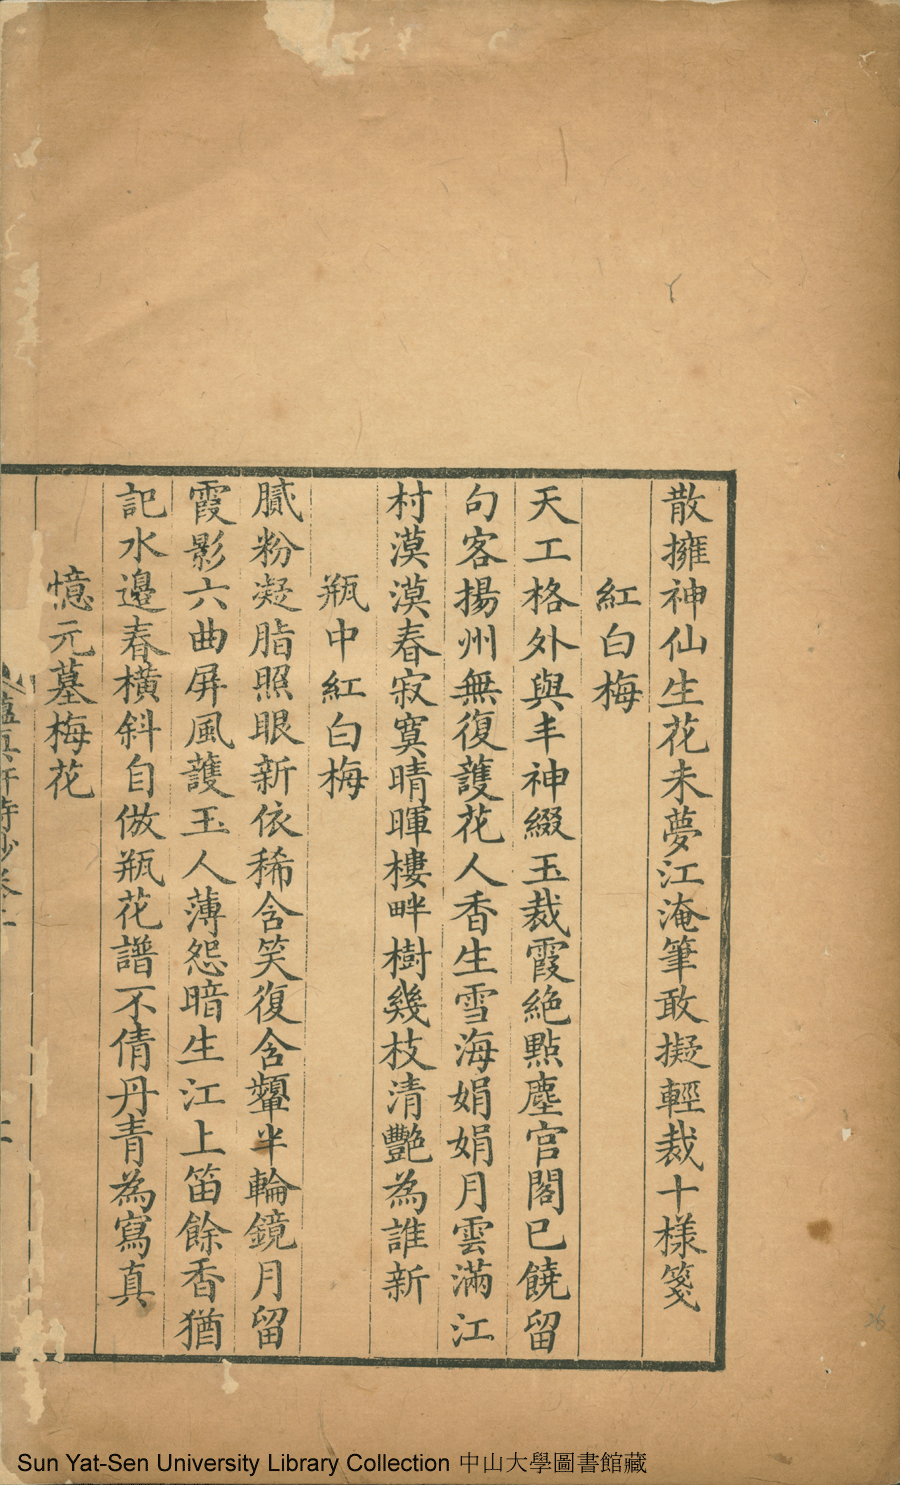 散擁神仙生花未夢江淹筆敢擬輕裁十樣箋
紅白梅
天工格外與丰神綴玉裁霞絶點塵官閣已饒留
句客揚州無復護花人香生雪海娟娟月雲滿江
村漠漠春寂寞晴暉樓畔樹幾枝清艷為誰新
瓶中紅白梅
膩粉凝脂照眼新依稀含笑復含顰半輪鏡月留
霞影六曲屏風護玉人薄怨暗生江上笛餘香猶
記水邊春橫斜自倣瓶花譜不倩丹青為寫真
憶元墓梅花
Sun Yat-Sen University Library Collection 中山大學圖書館藏